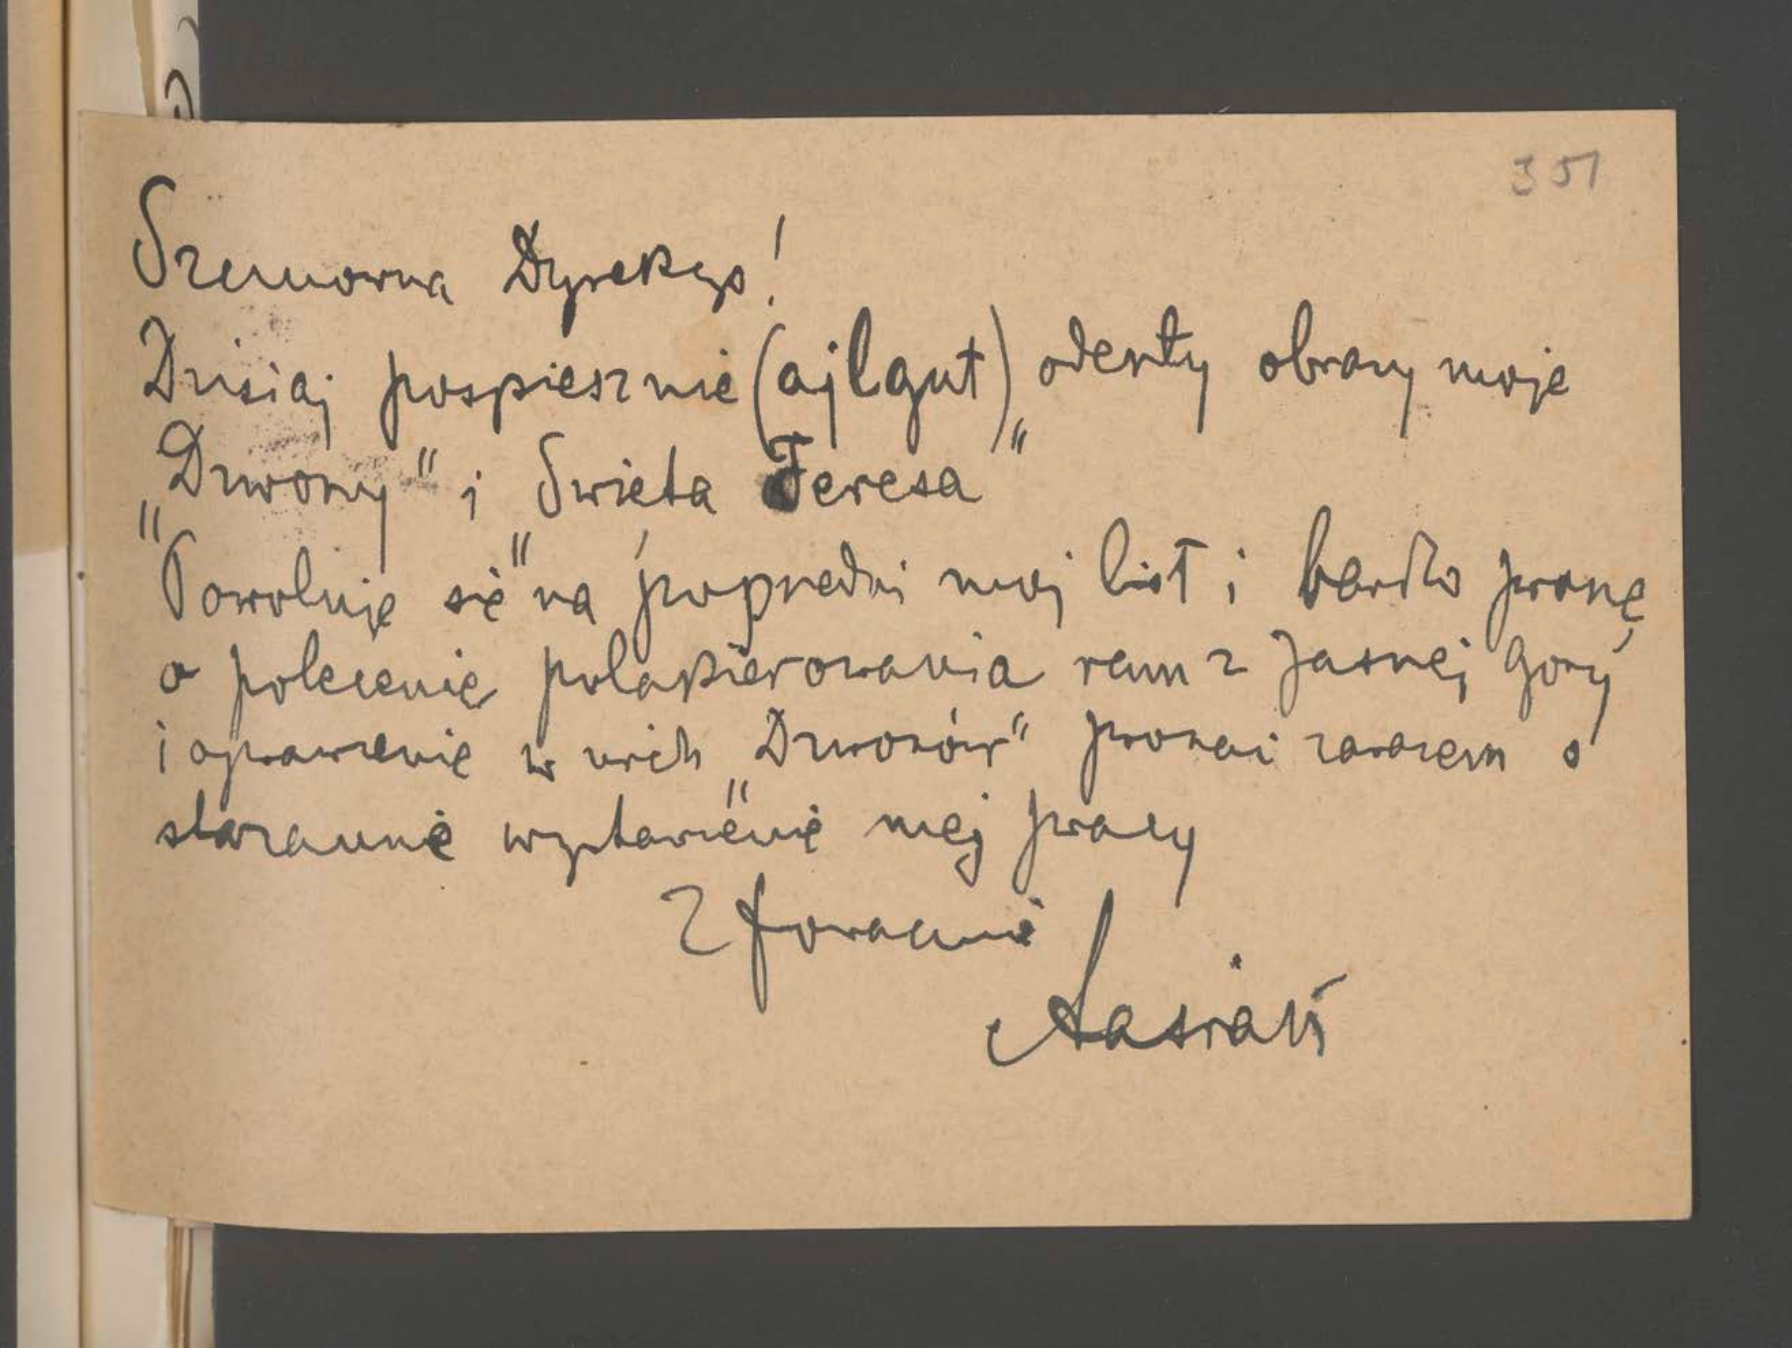 351
Szanowna Dyrekcjo!
Dzisiaj pospiesznie (ajlgut) odeszły obrazy moje
„Dzwony" i „Swieta Teresa"
Powołuje się na poprzedni moj list i bardzo proszę
o polecenie polakierowania ram z Jasnej Gory
i oprawienie w nich „Dzwonów" prosząc zarazem o
staranne wystawienie mej pracy
Z poważaniem